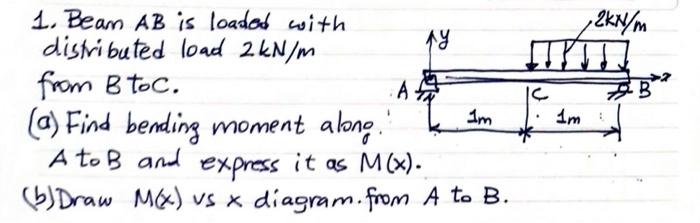 1. Beam AB is loaded with
distributed load 2kN/m
from B to C.
(a) Find bending moment along
A to B and express it as M(x).
(b) Draw M(x) vs x diagram. from A to B.
2kN/m
y
A
C
B
x
1m
1m